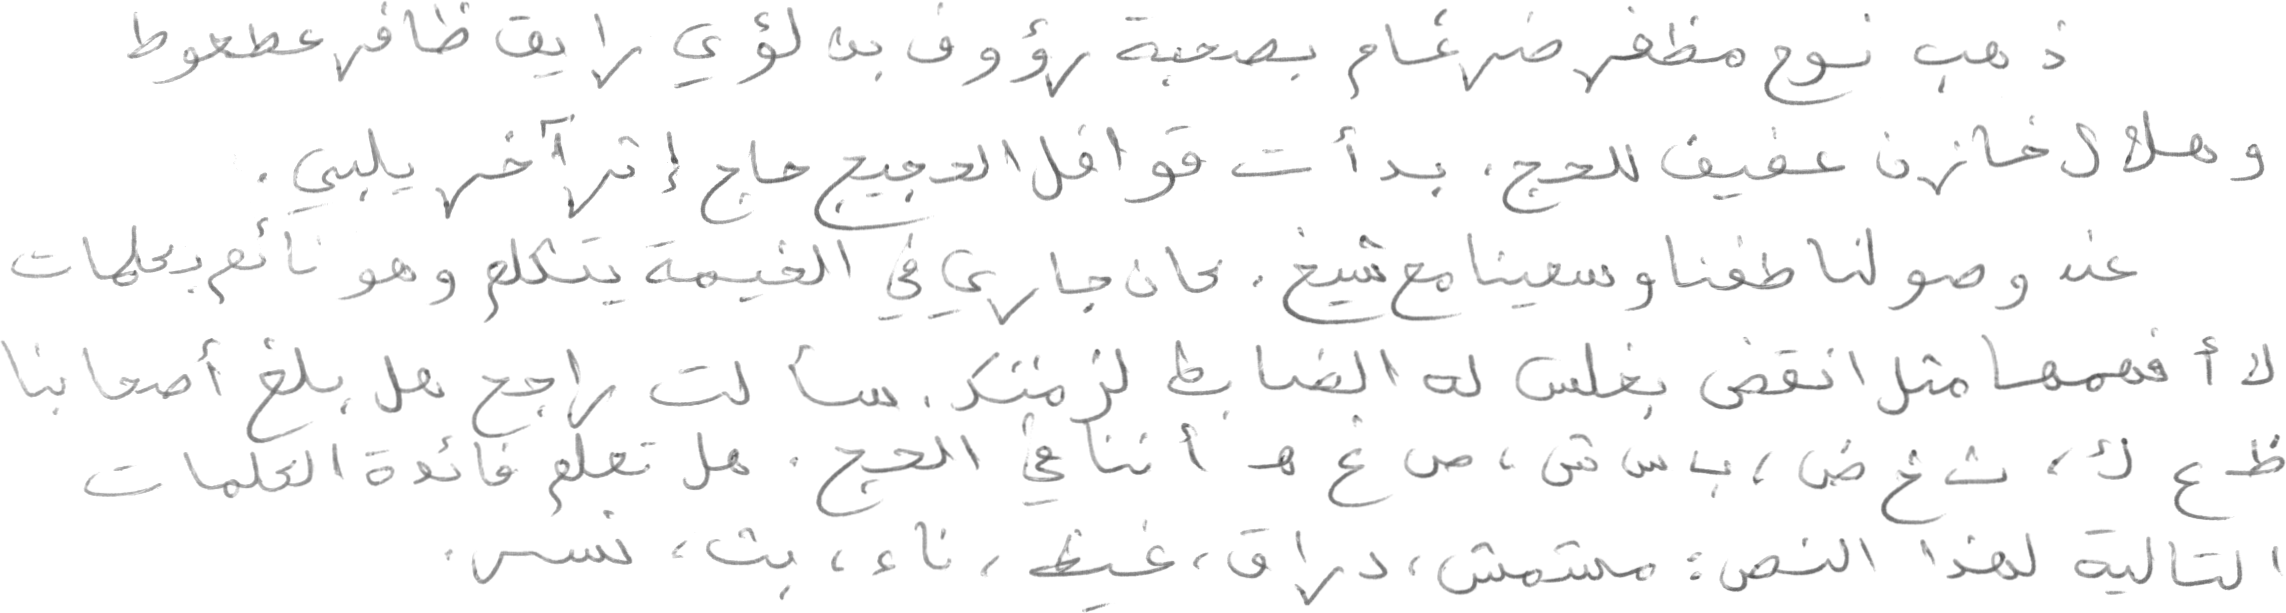 ذهب نوح مظفر ضرغام بصحبة رؤوف بن لؤي رايق ظافر عطعوط
وهلال خازن عفيف للحج. بدأت قوافل الحجيج حاج إثر آخر يلبي.
عند وصولنا طفنا وسعينا مع شيخ. كان جاري في الخيمة يتكلم وهو نائم بكلمات
لا أفهمها مثل انقض بغلس له الضابط لزمنتكد. سألت راجح هل بلغ أصحابنا
ظ ع ك، ث غ ض، ب س ش، ص غ هـ أننا في الحج. هل تعلم فائدة الكلمات
التالية لهذا النص: مشمش، دراق، غيظ، ناء، بث، نسر.